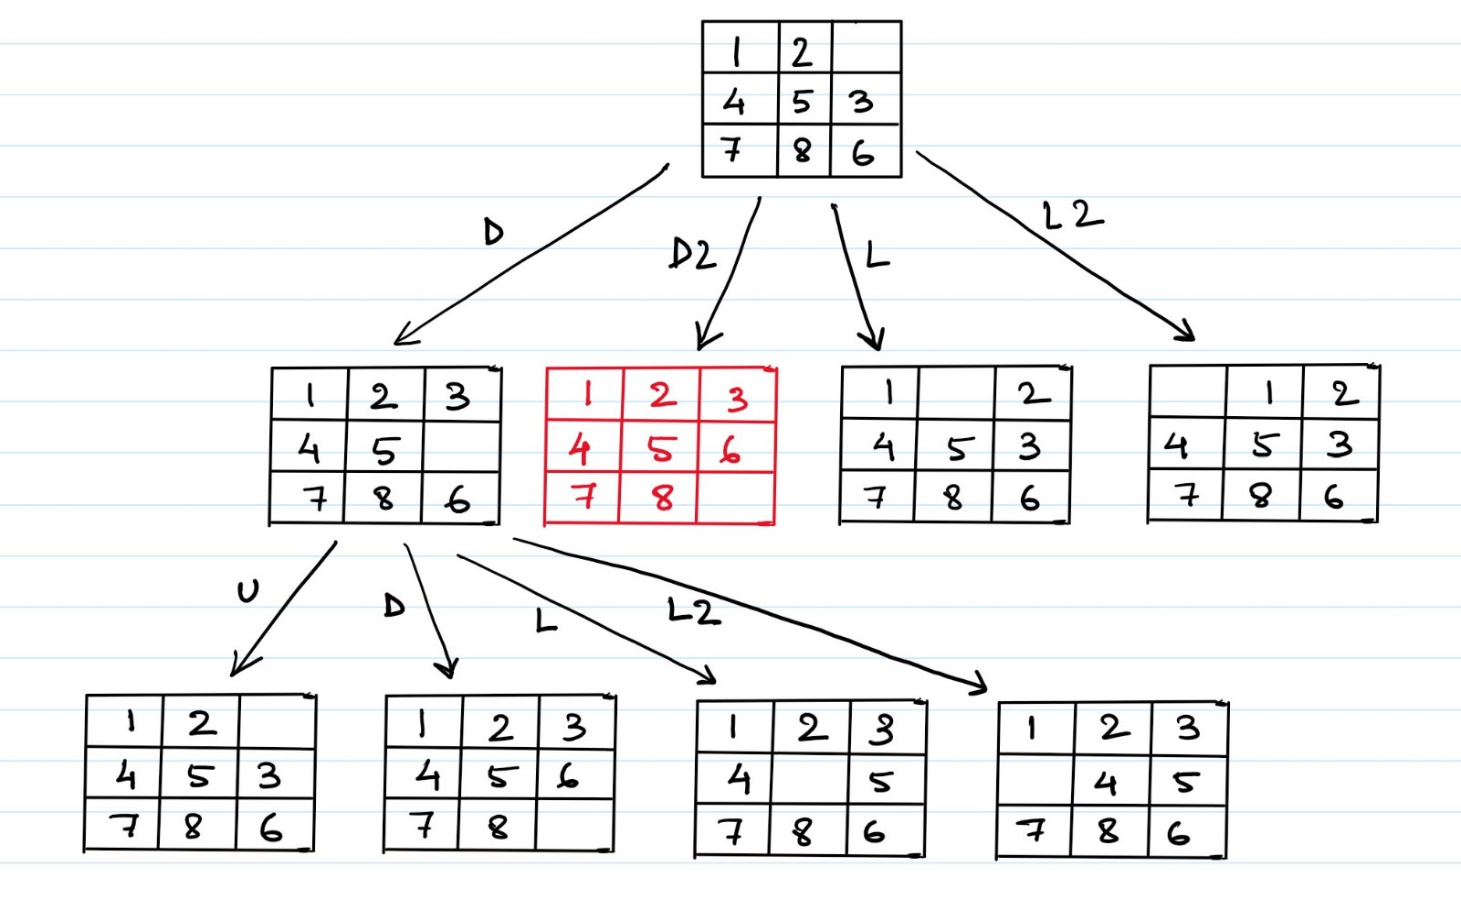 1 2
4 5 3
7 8 6
D D2 L L2
1 2 3
4 5
7 8 6
1 2 3
4 5 6
7 8
1 2
4 5 3
7 8 6
1 2
4 5 3
7 8 6
U D L L2
1 2
4 5 3
7 8 6
1 2 3
4 5 6
7 8
1 2 3
4 5
7 8 6
1 2 3
4 5
7 8 6